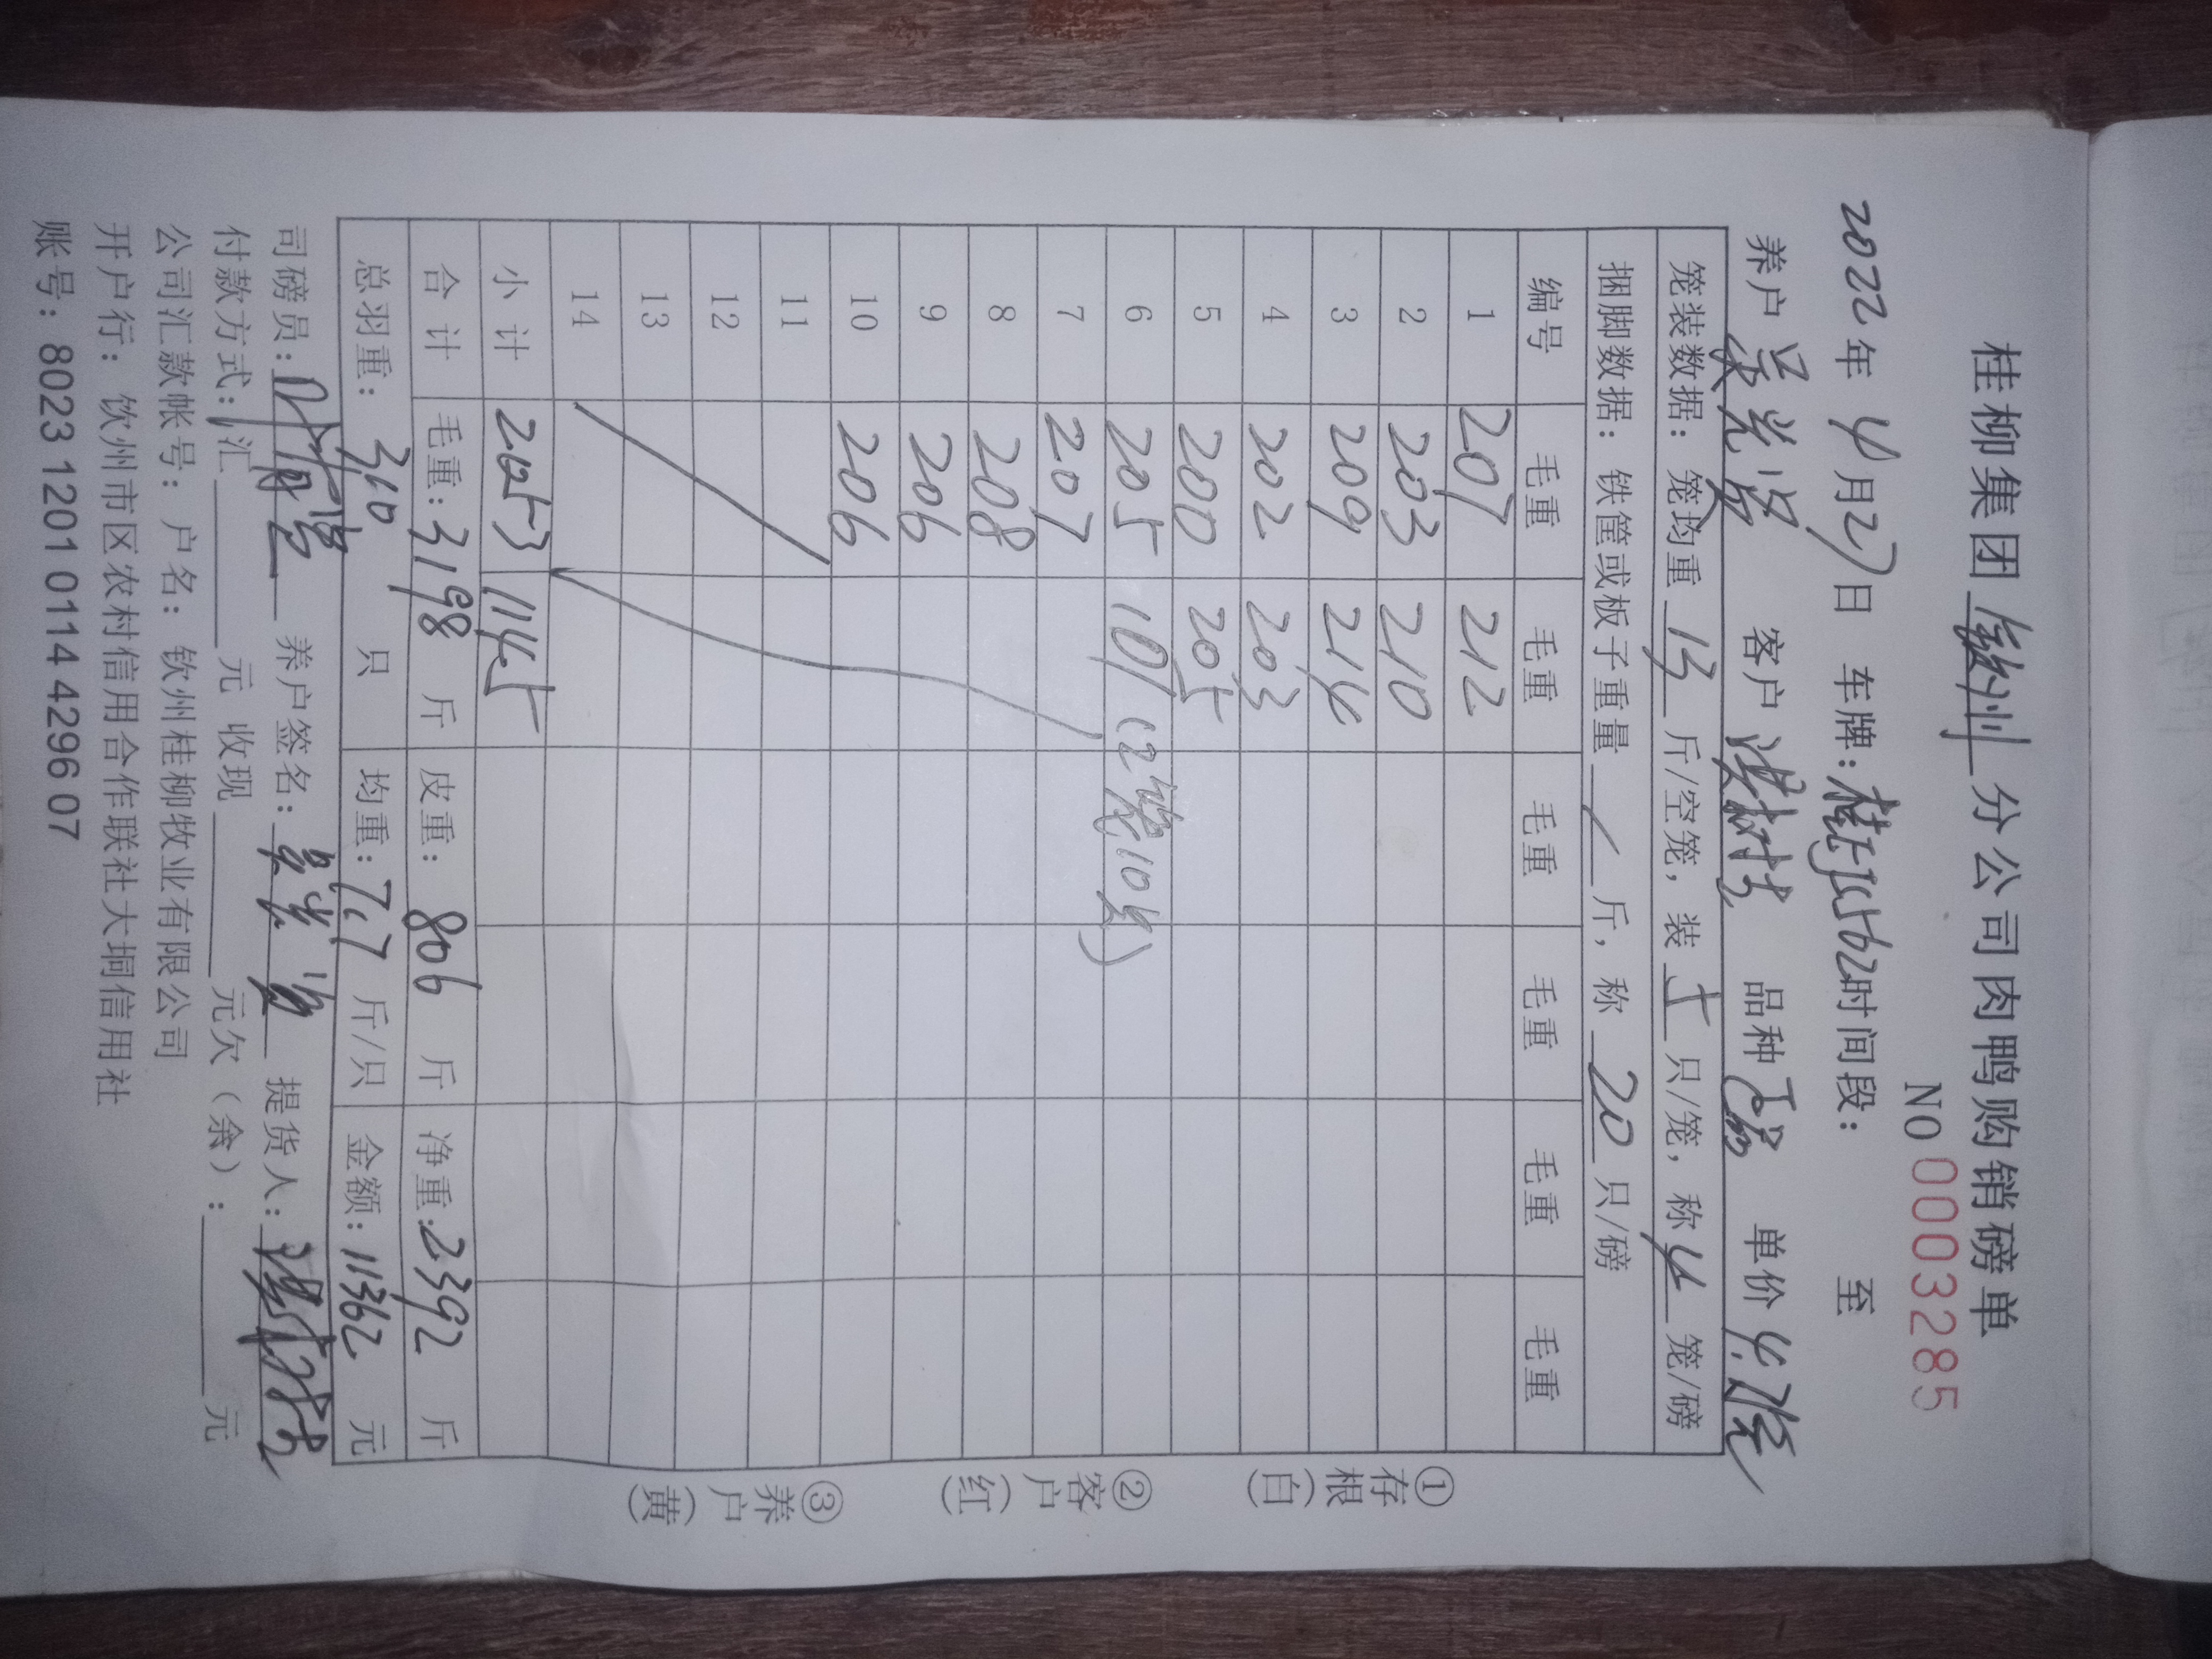 桂柳集团 钦州 分公司肉鸭购销磅单
NO 0003285
2022年 4月27日 车牌: 时间段: 至
养户 客户 品种 单价 4.75
笼装数据: 笼均重 13 斤/空笼, 装 5 只/笼, 称 4 笼/磅
捆脚数据: 铁筐或板子重量 / 斤, 称 20 只/磅
编号 毛重 毛重 毛重 毛重 毛重 毛重
1 207 212
2 203 210
3 209 214
4 202 203
5 200 205
6 205 101 (2笼10只)
7 207
8 208
9 206
10 206
11
12
13
14
小计 2053 1145
合计 毛重: 3198 斤 皮重: 806 斤 净重: 2392 斤
总羽重: 310 只 均重: 7.7 斤/只 金额: 11362 元
司磅员: 养户签名: 提货人:
付款方式: 汇 元 收现 元欠(余): 元
公司汇款帐号: 户名: 钦州桂柳牧业有限公司
开户行: 钦州市区农村信用合作联社大垌信用社
账号: 8023 1201 0114 4296 07
①存根(白) ②客户(红) ③养户(黄)